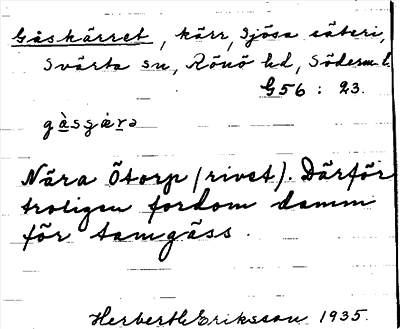 Gåskärret, kärr, Sjösa säteri,
Svärta sn, Rönö hd, Söderm l.
G56 : 23.
gåsçæ̀rə
Nära Ötorp (rivet). Därför
troligen fordom damm
för tamgäss.
Herbert Eriksson 1935.